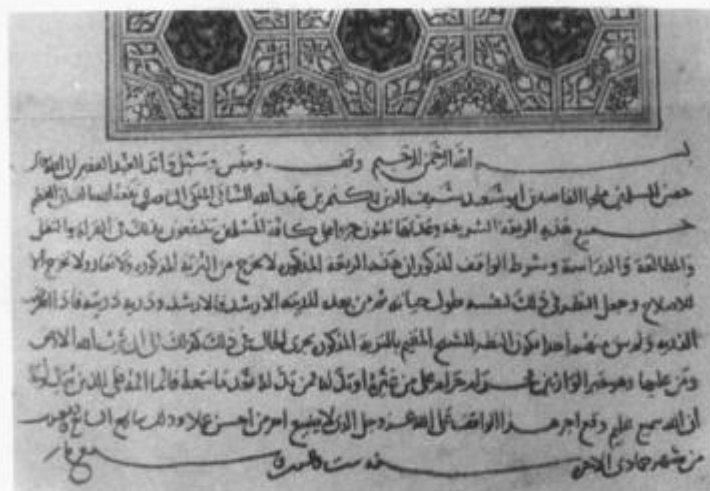 بسم الله الرحمن الرحيم وقف وحبس وسبل وأبد العبد الفقير إلى الله
حصن المسلمين ملجا القاصدين أبو سعيد سيف الدين بكتمر بن عبد الله الساقي الملكي الناصري
جميع هذه الربعة الشريفة وعدتها ثلثون جزوا على كافة المسلمين ينتفعون بذلك في القراة والنقل
والمطالعة والدراسة وشرط الواقف المذكور ان هذه الربعة المذكورة لا تخرج من التربة المذكورة ولا تعار ولا تخرج الا
للاصلاح وجعل النظر في ذلك لنفسه طول حياته ثم من بعده لذريته الارشد فالارشد وذريه ذريته فاذا
الذرية وليس منهم أحدا يكون النظر للشيخ المقيم بالتربة المذكورة يجرى الحال في ذلك كذلك الى ان يرث الله الارض
ومن عليها وهو خير الوارثين فمن بدله بعد ما سمعه فانما اثمه على الذين يبدلونه
ان الله سميع عليم وقع اجر هذا الواقف على الله عز وجل الذى لا يضيع اجر من احسن عملا وذلك بتاريخ
من شهر جمادى الاخرة سنة ست وعشرين وسبع مائة